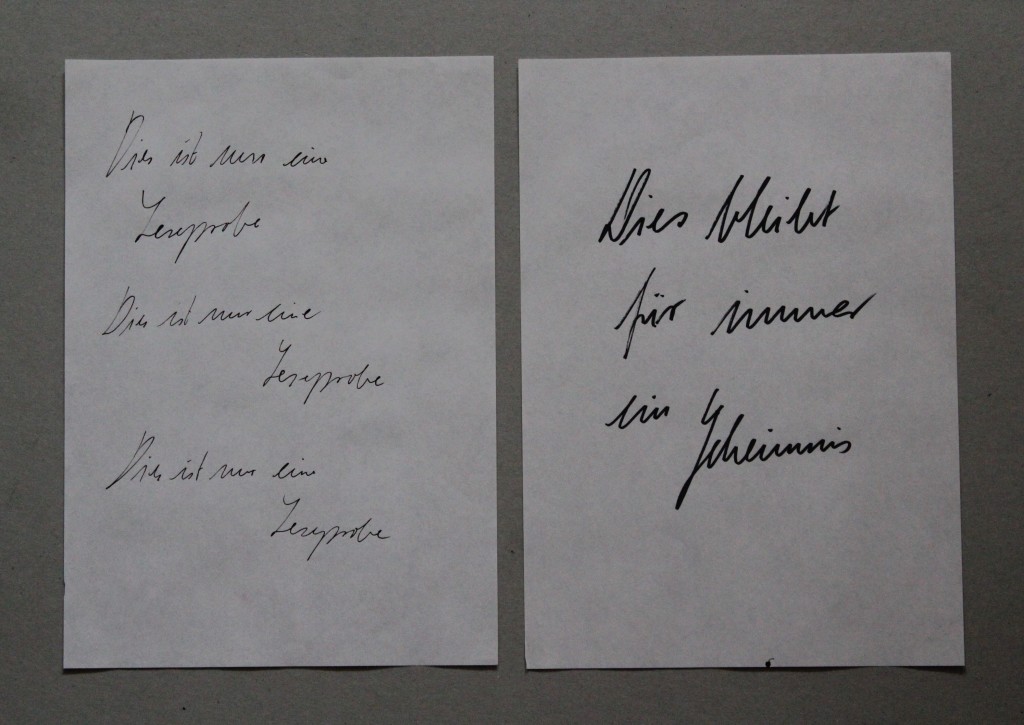 Dies ist nur eine
Leseprobe
Dies ist nur eine
Leseprobe
Dies ist nur eine
Leseprobe
Dies bleibt
für immer
ein Geheimnis